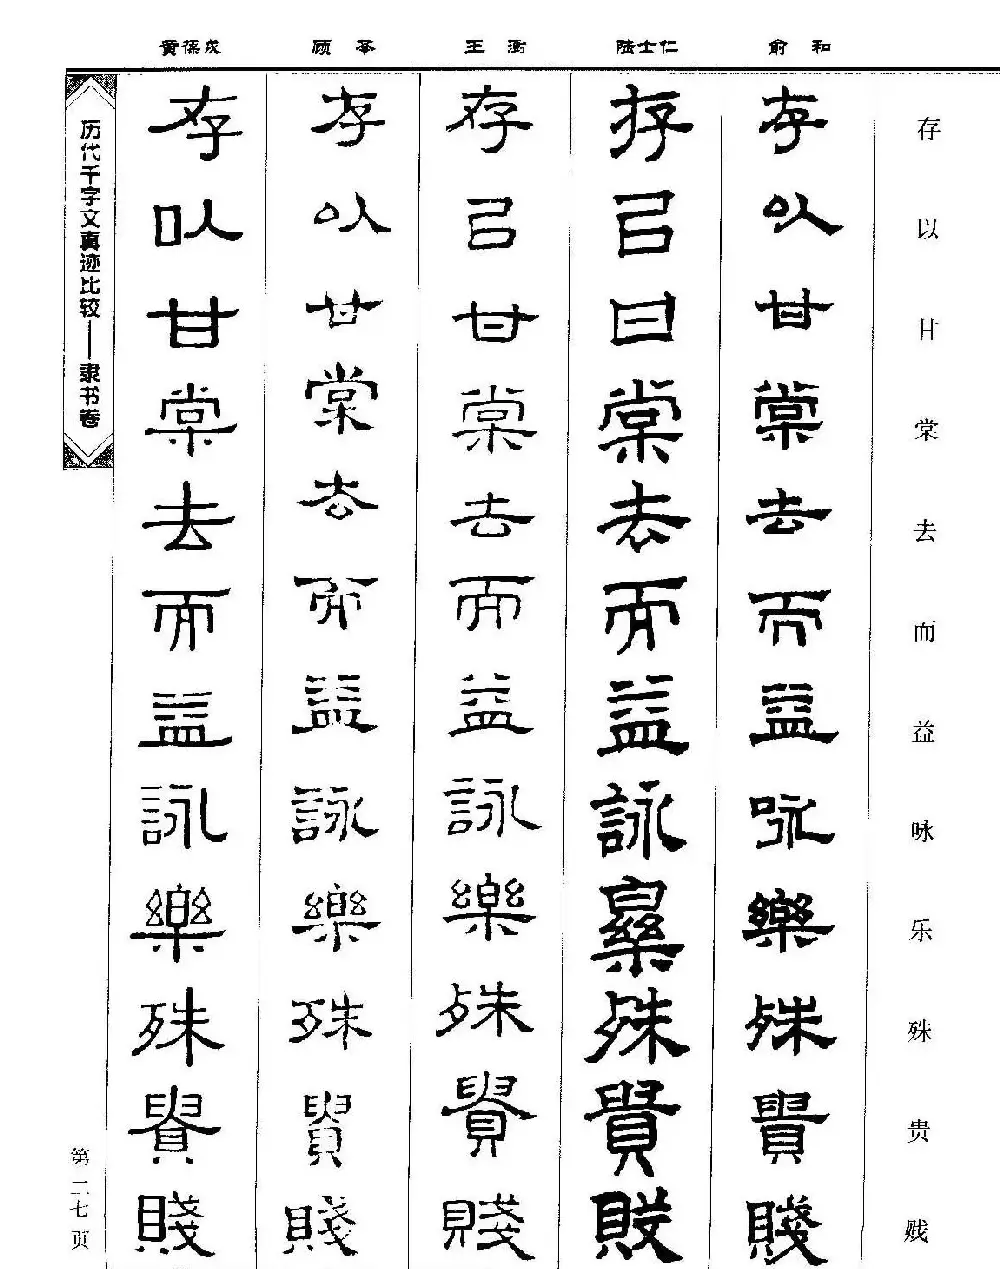 存以甘棠去而益咏乐殊贵贱
俞和
存以甘棠去而益咏樂殊貴賤
陆士仁
存以甘棠去而益詠樂殊貴賤
王澍
存以甘棠去而益詠樂殊貴賤
顾苓
存以甘棠去而益詠樂殊貴賤
黄葆戉
存以甘棠去而益詠樂殊貴賤
历代千字文真迹比较——隶书卷
第二七页